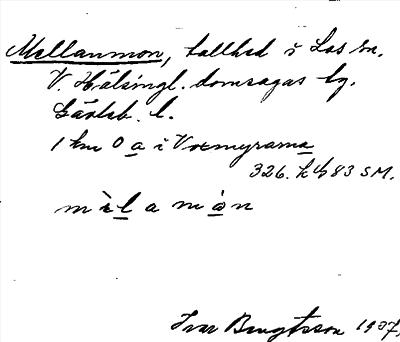 Mellanmon, tallhed i Los sn.
V. Hälsingl. domsagas tg.
Gävleb. l.
1 km O a i Voxmyrarna
326. kb 83 SM.
Ivar Bengtsson 1937.